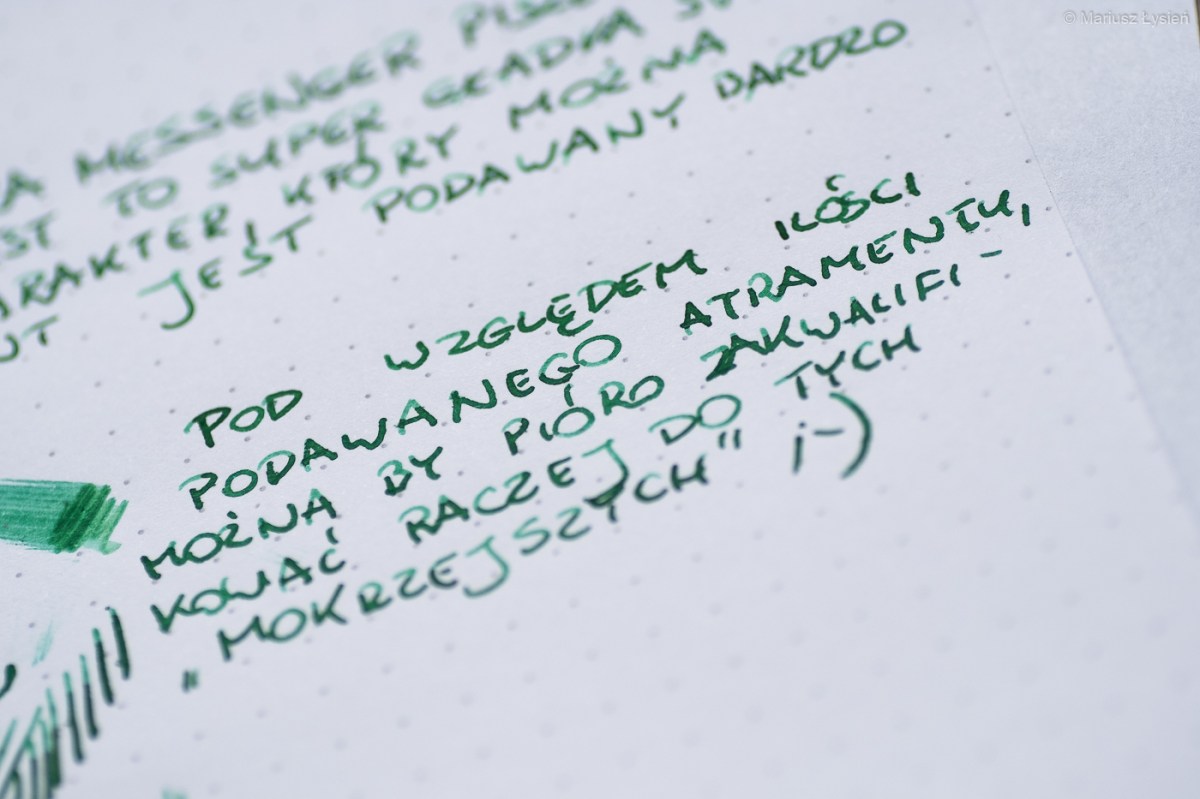 © Mariusz Łysień
A MESSENGER
EST TO SUPER GŁADKA
ARAKTER, KTÓRY MOŻNA
UT JEST PODAWANY BARDZO
POD WZGLĘDEM ILOŚCI
PODAWANEGO ATRAMENTU,
MOŻNA BY PIÓRO ZAKWALIFI-
KOWAĆ RACZEJ DO TYCH
„MOKRZEJSZYCH" ;-)